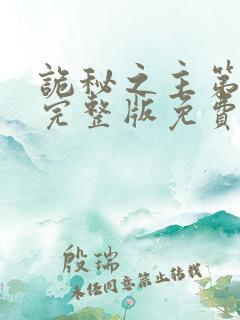 詭秘之主第
完整版免費
殷瑞
未经同意禁止转载